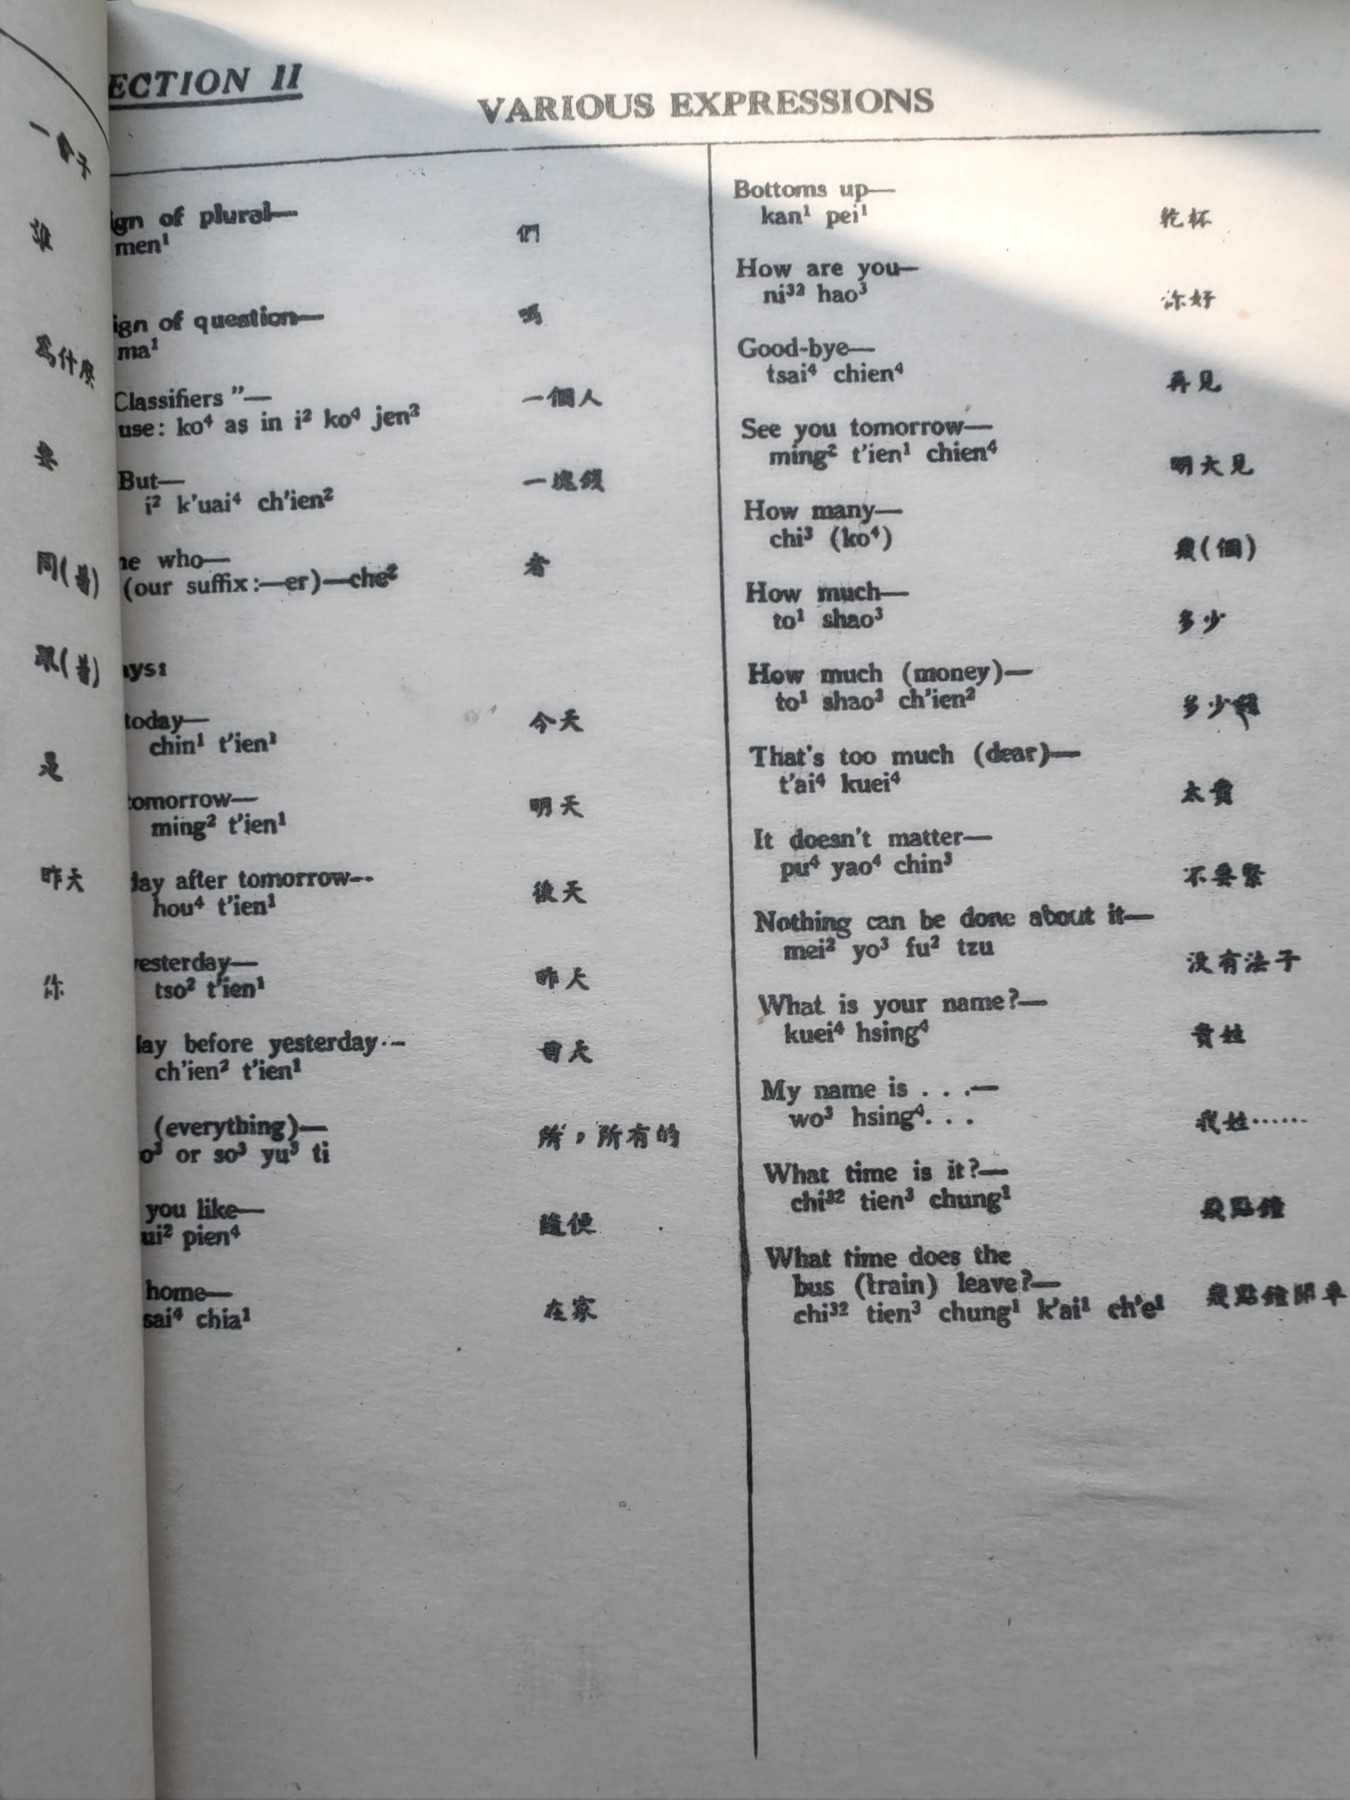 一會子
誰
為什麼
要
同(着)
跟(着)
是
昨天
你
ECTION II
VARIOUS EXPRESSIONS
ign of plural—
men¹ 們
ign of question—
ma¹ 嗎
Classifiers"—
use: ko⁴ as in i² ko⁴ jen² 一個人
But—
i² k'uai⁴ ch'ien² 一塊錢
ne who—
(our suffix:—er)—che² 者
ays:
today—
chin¹ t'ien¹ 今天
tomorrow—
ming² t'ien¹ 明天
day after tomorrow--
hou⁴ t'ien¹ 後天
yesterday—
tso² t'ien¹ 昨天
day before yesterday--
ch'ien² t'ien¹ 前天
(everything)—
o³ or so³ yu³ ti 所,所有的
you like—
ui² pien⁴ 隨便
home—
sai⁴ chia¹ 在家
Bottoms up—
kan¹ pei¹ 乾杯
How are you—
ni³² hao³ 你好
Good-bye—
tsai⁴ chien⁴ 再見
See you tomorrow—
ming² t'ien¹ chien⁴ 明天見
How many—
chi³ (ko⁴) 幾(個)
How much—
to¹ shao³ 多少
How much (money)—
to¹ shao³ ch'ien² 多少錢
That's too much (dear)—
t'ai⁴ kuei⁴ 太貴
It doesn't matter—
pu⁴ yao⁴ chin³ 不要緊
Nothing can be done about it—
mei² yo³ fu² tzu 没有法子
What is your name?—
kuei⁴ hsing⁴ 貴姓
My name is . . .—
wo³ hsing⁴. . . 我姓……
What time is it?—
chi³² tien³ chung¹ 幾點鐘
What time does the
bus (train) leave?—
chi³² tien³ chung¹ k'ai¹ ch'e¹ 幾點鐘開車